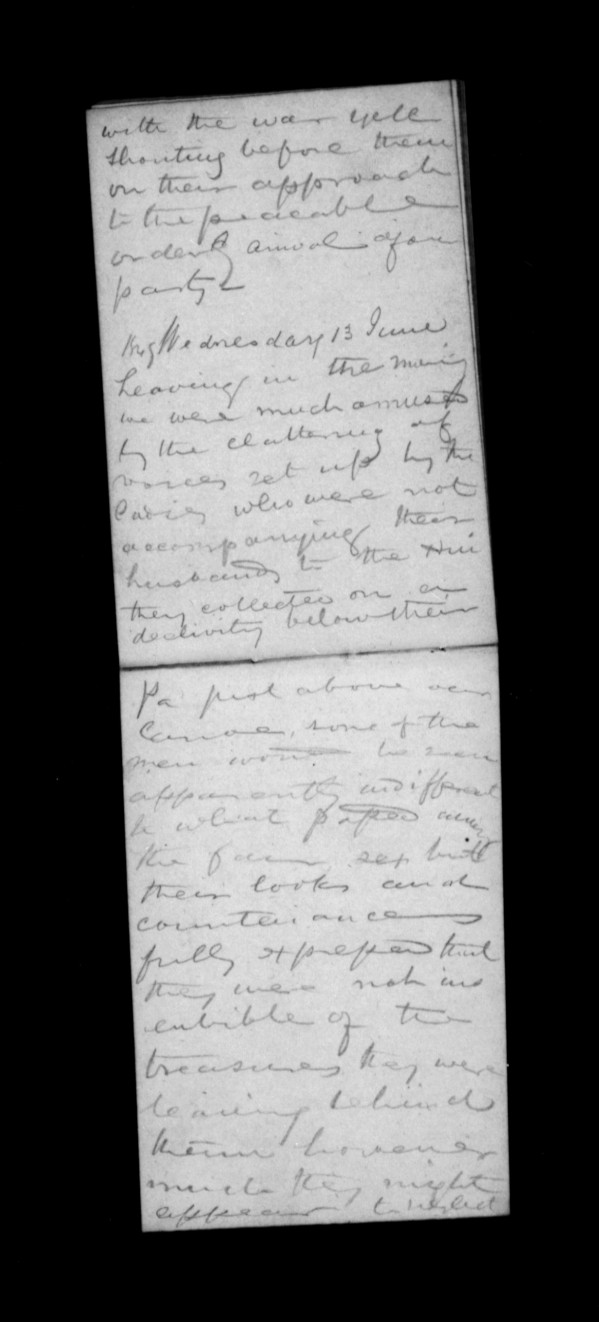 with the war yell
shouting before them
on their approach
to the peacable
orderly arrival of our
party
Wednesday 13 June
Leaving in the morning
we were much amused
by the clattering of
voices set up by the
Ladies who were not
accompanying their
husbands to the Hui
they collected on a
declivity below their
Pa just above our
Canoe, some of the
men would be seen
apparently indifferent
to what passed among
the fair sex but
their looks and
countenances
fully expressed that
they were not ins
ensible of the
treasures they were
leaving behind
them however
much they might
appear to neglect